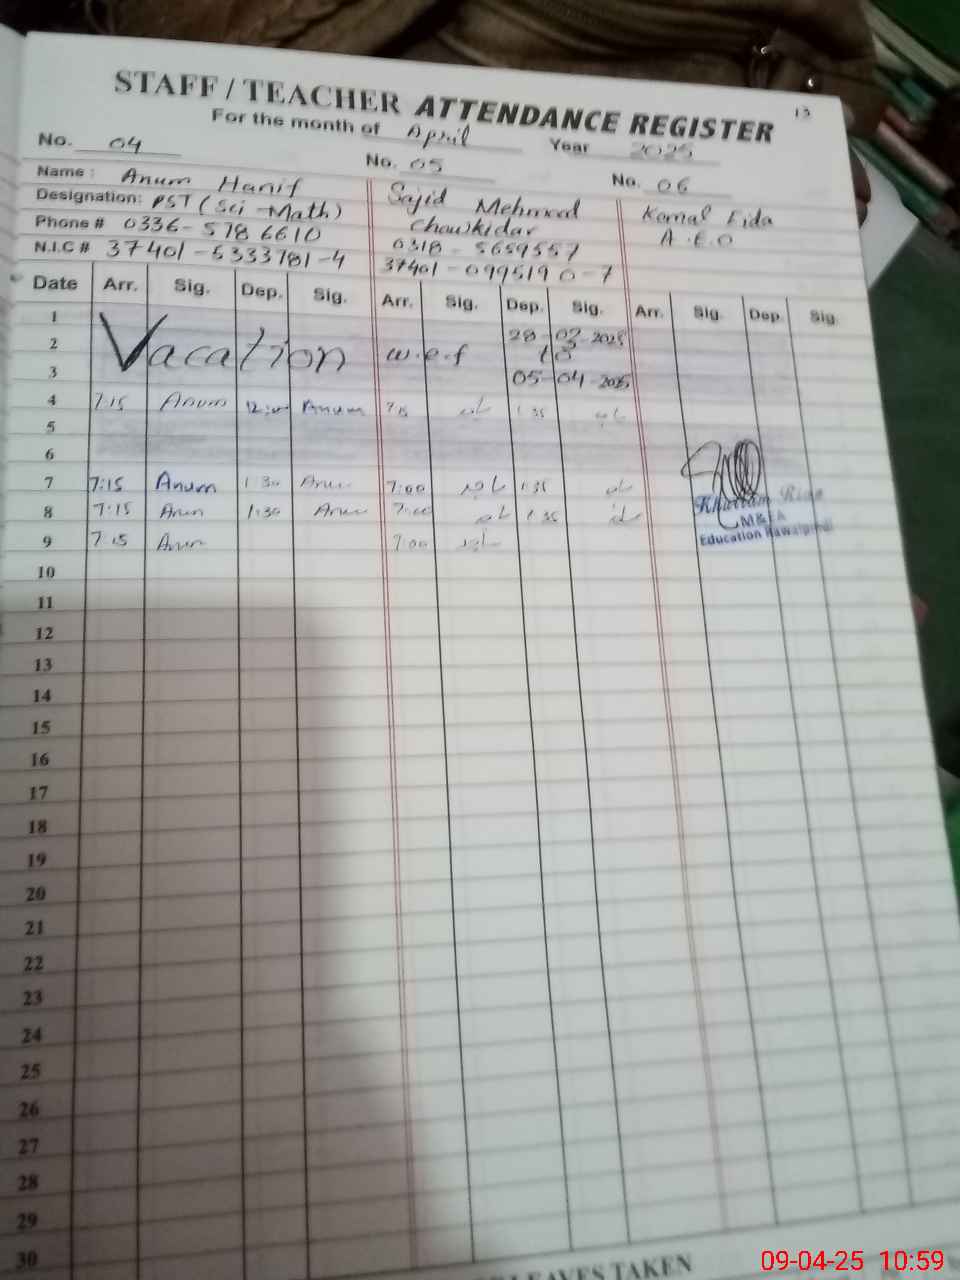 13
STAFF / TEACHER ATTENDANCE REGISTER
For the month of April Year 2025
No. 04 No. 05 No. 06
Name : Anum Hanif Sajid Mehmood Komal Fida
Designation: PST (Sci-Math) Chowkidar A.E.O
Phone # 0336-5786610 0318-5659557
N.I.C # 37401-5333781-4 37401-0995190-7
Date Arr. Sig. Dep. Sig. Arr. Sig. Dep. Sig. Arr. Sig. Dep. Sig.
1
2 Vacation w.e.f 28-03-2025 to
3 05-04-2025
4 7:15 Anum Anum 1:35
5
6
7 7:15 Anum 1:30 Anum 7:00 ساجد 1:35
8 7:15 Anum 1:30 Anum 7:00 1:35
9 7:15 Anum 7:00 ساجد
Khurram
M&EA
Education Rawalpindi
10
11
12
13
14
15
16
17
18
19
20
21
22
23
24
25
26
27
28
29
30
LEAVES TAKEN
09-04-25 10:59